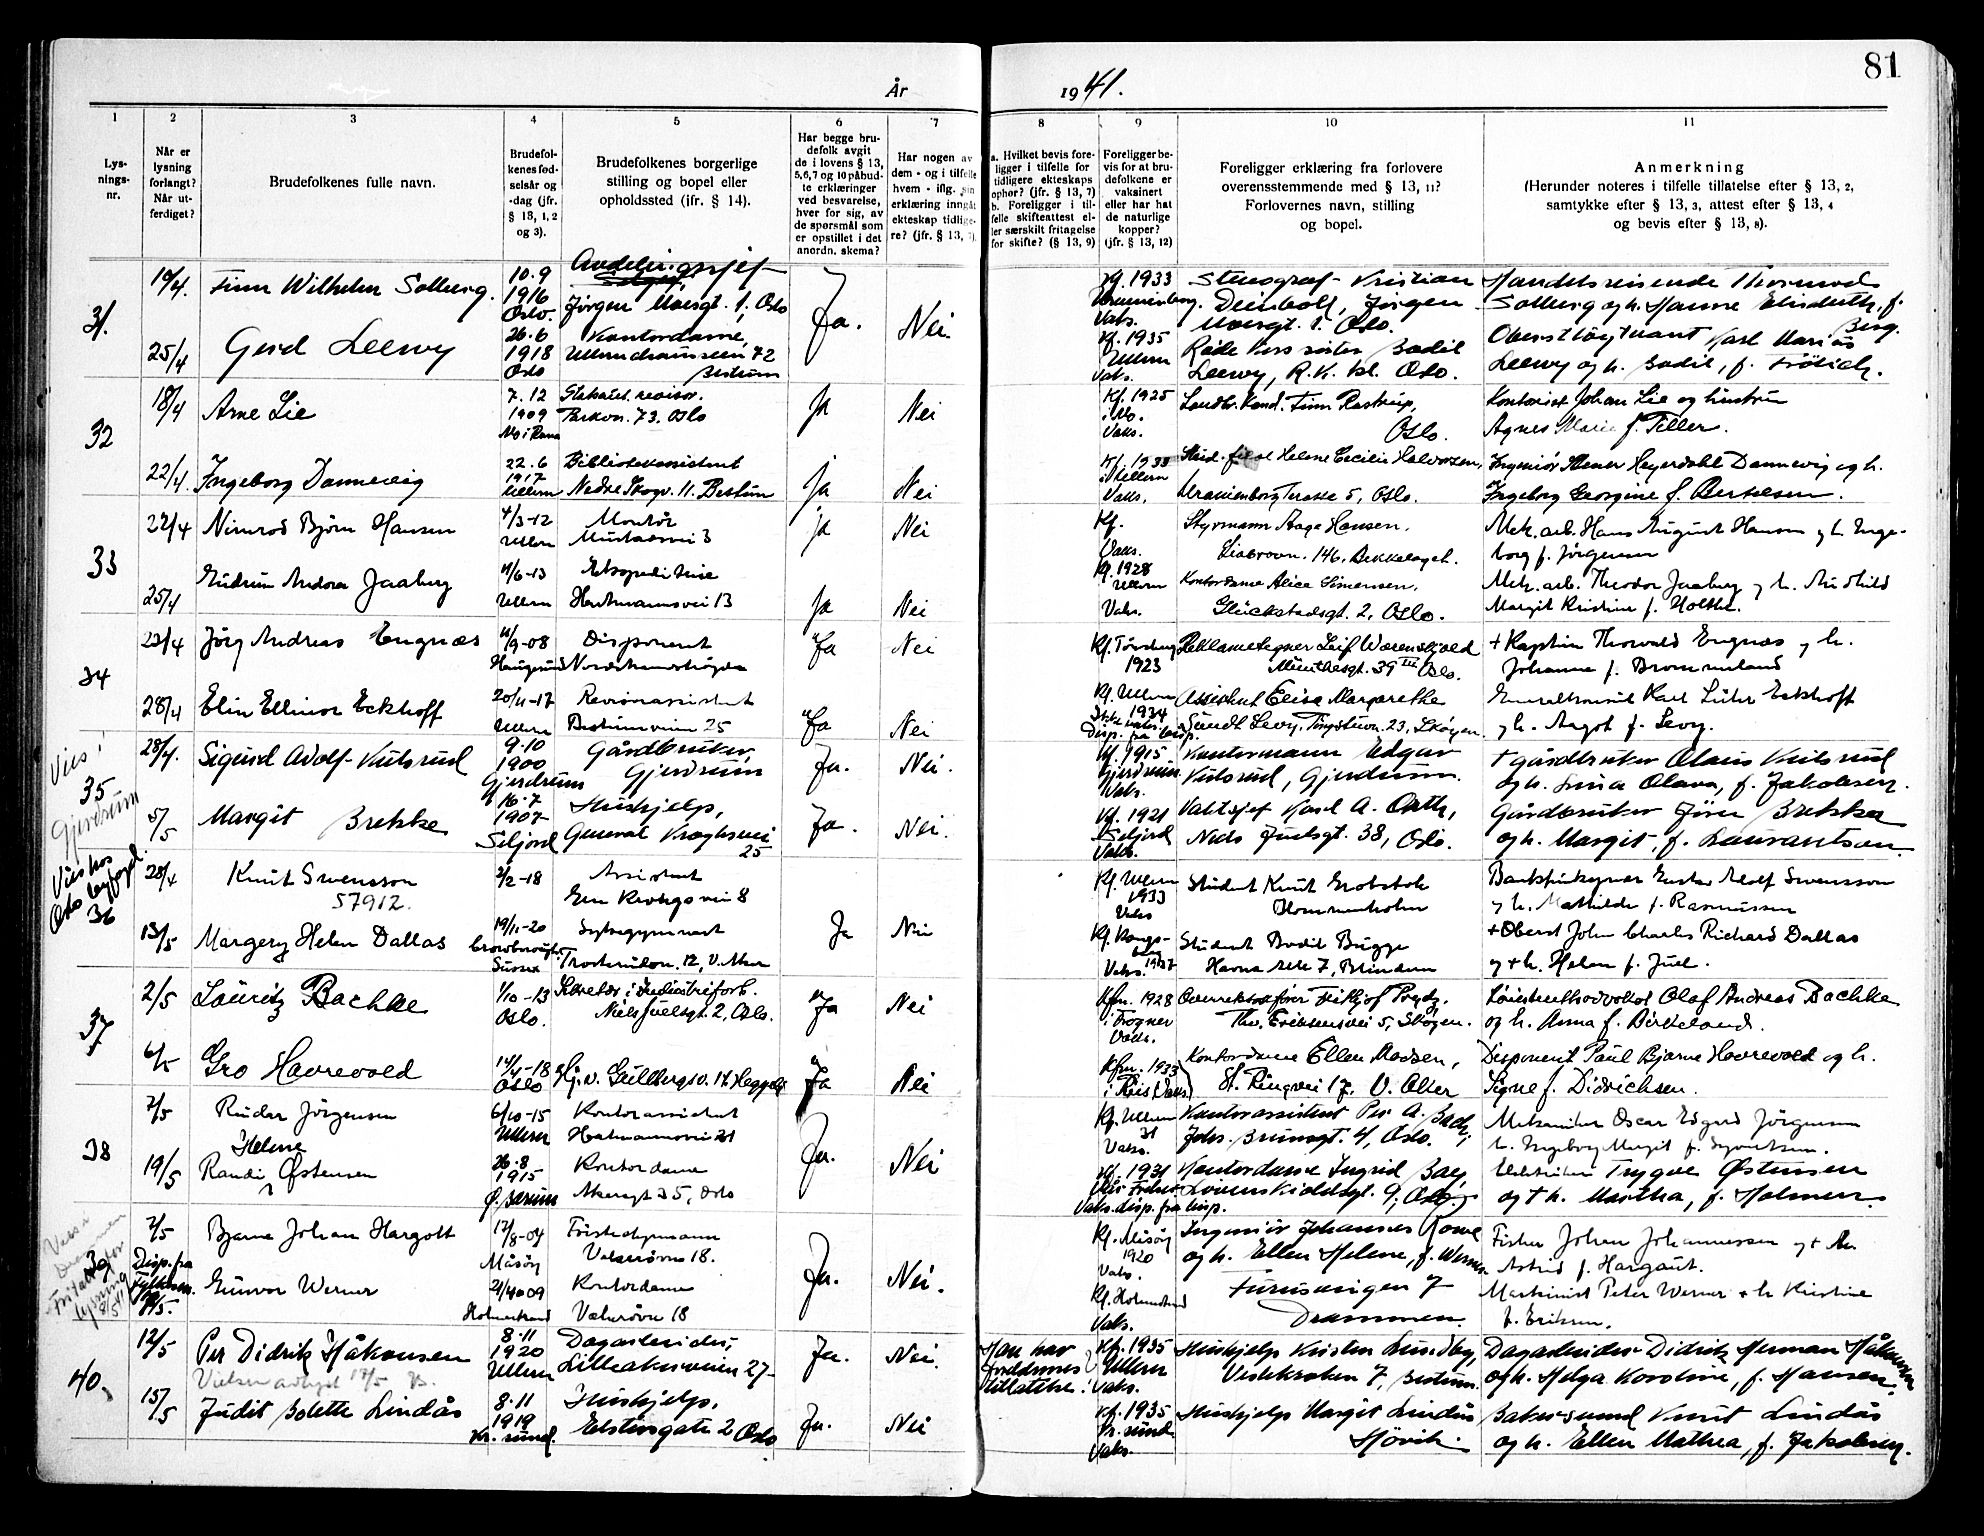 81
År 1941.
1
2
3
4
5
6
7
8
9
10
11
Lysningsnr.
Når er lysning forlangt? Når utferdiget?
Brudefolkenes fulle navn.
Brudefolkenes fødselsår og -dag (jfr. § 13, 1, 2 og 3).
Brudefolkenes borgerlige stilling og bopel eller opholdssted (ifr. § 14).
Har begge brudefolk avgit de i lovens § 13, 5, 6, 7 og 10 påbudte erklæringer ved besvarelse, hver for sig, av de spørsmål som er opstillet i det anordn. skema?
Har nogen av dem - og i tilfelle hvem - iflg. sin erklæring inngått ekteskap tidligere? (jfr. § 13, 7).
a. Hvilket bevis foreligger i tilfelle for tidligere ekteskaps ophør? (jfr. § 13, 7)
b. Foreligger i tilfelle skifteattest eller særskilt fritagelse for skifte? (§ 13, 9)
Foreligger bevis for at brudefolkene er vaksinert eller har hat de naturlige kopper? (jfr. § 13, 12)
Foreligger erklæring fra forlovere overensstemmende med § 13, 11? Forlovernes navn, stilling og bopel.
Anmerkning
(Herunder noteres i tilfelle tillatelse efter § 13, 2, samtykke efter § 13, 3, attest efter § 13, 4 og bevis efter § 13, 8).
31. 19/4. Finn Wilhelm Solberg. 10.9 1916 Oslo. Avdelingssjef Jørgen Moesgt. 1, Oslo Ja. Nei. 1933 Vaks. Stenograf Kristian Deinboll, Jørgen Moesgt. 1. Oslo. Handelsreisende Thormod Solberg og h. Hanne Elisabeth, f. Berg.
25/4 Gerd Leewy 26.6 1918 Oslo Kontordame, Ullernchausseen 72 Bestum Kf. 1935 Ullern Vaks. Røde Kors søster Bodil Leewy, R.K. kl. Oslo. Oberstløytnant Karl Marius Leewy og h. Bodil, f. Frölich.
32 18/4 Arne Lie 7.12 1909 Mo i Rana Statsaut. revisor. Parkvn. 73. Oslo Ja Nei Kf. 1925 i Mo. Vaks. Landbr. Kand. Finn Rastrup, Oslo. Kontorist Johan Lie og hustru Agnes Marie f. Teller.
22/4 Ingeborg Dannevig 22.6 1917 Ullern Bibliotekassistent Nedre Skogv. 11. Bestum Ja Nei Kf. 1933 i Ullern Vaks. Stud. Helene Cecilie Halvorsen, Uranienborg Terasse 5, Oslo. Ingeniør Heyerdahl Dannevig og h. Ingeborg Georgine f. Bertelsen.
33 22/4 Nimrod Bjørn Hansen 4/3-12 Ullern Montør Mustadsvei 3 Ja Nei Kf. Vaks. Styrmann Aage Hansen. Liabrovn. 146, Bekkelaget. Mek. arb. Hans August Hansen og h. Ingeborg f. Jørgensen
25/4 Gudrun Andora Jaaberg 11/6-13 Ullern Ekspeditrise Hartmannsvei 13 Ja Nei Kf. 1928 Ullern Vaks. Kontordame Alice Simensen, Glückstadsgt. 2, Oslo. Mek. arb. Theodor Jaaberg og h. Margit Kristine f. Holthe.
34 23/4 Jörg Andreas Engnæs 11/9-08 Haugesund Disponent Nordstrandshøgda Ja Nei Kf. Tønsberg 1923 Reklametegner Leif Wærenskjold Munthesgt. 39 III Oslo. + Kaptein Thorvald Engnæs og h. Johanne f. Brommeland
28/4 Elin Ellinor Eckhoff 20/11-17 Ullern Revisorassistent Bestumveien 25 Ja Nei Kf. Ullern 1934 Ikke vaks. Disp. fra bisp. Assistent Elise Margarethe Sundt Levy, Tingstuvn. 23, Skøyen. Generalkonsul Karl Lüder Eckhoff og h. Aagot f. Levy.
Vies i Gjerdrum
35 28/4. Sigurd Adolf Kulsrud 9.10 1900 Gjerdrum Gårdbruker Gjerdrum Ja. Nei. Kf. 1915 Gjerdrum Vaks. Kontormann Edgar Kulsrud, Gjerdrum. + gårdbruker Olaus Kulsrud og h. Lina Olava, f. Jakobsen.
5/5 Margit Brekke 16.7 1907 Seljord Hushjelp, General Kroghsvei 25 Ja. Nei. Kf. 1921 Seljord Vaks. Vaktsjef Karl A. Orth, Niels Juelsgt. 38, Oslo. Gårdbruker Jören Brekke og h. Margit, f. Lauvantsen.
Vies hos Oslo byfogd.
36 28/4 Knut Svensson 57912. 2/2-18 Assistent Gen. Kroghsvei 8 Kf. Ullern 1933 Vaks Student Knut Grobstok Hommenholm Bankfunksjonær Gustav Adolf Svensson og h. Mathilde f. Rasmussen
13/5 Margery Helen Dallas 19/11-20 Crowborough Sussex Sykegymnast Trosterudvn. 12, V. Aker Ja Nei Kf. Kongsberg 1937 Vaks. Student Bodil Bugge Havna Alle 7, Blindern + Oberst John Charles Richard Dallas og + h. Helen f. Juel.
37 2/5 Lauritz Bachke 1/10-13 Oslo. Sekretær i Industriforb. Niels Juelsgt. 2, Oslo. Ja Nei Kfm. 1928 i Frogner Vaks. Overrettssakfører Fritjof Prydz, Thv. Eriksensvei 5, Skøyen. Høiesterettsadvokat Olaf Andreas Bachke og h. Anna f. Birkeland.
6/5 Gro Havrevold 14/4-18 Oslo Hj. v. Gullbergsv. 17 Heggeli Ja Nei Kfm. 1933 i Ris (Vaks) Kontordame Ellen Madsen, St. Ringvei 17, V. Aker Disponent Paul Bjarne Havrevold og h. Signe f. Didrichsen.
38 7/5 Reidar Jörgensen 6/10-15 Ullern Kontorassistent Hartmannsvei 21 Ja. Nei Kf. Ullern 31 Vaks. Kontorassistent Per A. Bach, Johs. Brunsgt. 4, Oslo. Mekaniker Oscar Edgard Jörgensen h. Ingeborg Margit f. Syvertsen.
19/5 Randi Helene Østensen 26.8 1915 Ø. Bærum Kontordame Akersgt 35, Oslo Kf. 1931 Vaks. disp. fra bisp. Kontordame Ingrid Løvenskioldsgt. 9, Oslo Elektriker Trygve Østensen og + h. Martha, f. Holmen.
Vies i Drammen
Fritatt for lysning 8/5 41
39 7/5 Bjarne Johan Hargott 17/8-04 Måsøy Tristedsmann Vækerøvn 18. Ja. Nei. Kf. Måsøy 1920 Vaks. Ingeniør Johannes Rowe og h. Ellen Helene, f. Werner Furusvingen 7 Drammen. Fisker Johan Johannessen og + h. Astrid f. Hargaut.
Disp. fra Gunvor Werner 21/4 09 Holmestrand Kontordame Vækerövn 18 Kf. Holmestrand Vaks. Maskinist Peter Werner + h Kristine f. Eriksen.
40. 12/5 Per Didrik Håkonsen 8.11 1920 Ullern Dagarbeider, Lilleakerveien 27 Ja. Nei. Han har foreldrenes tillatelse! Kf. 1935 Ullern Vaks. Hushjelp Kirsten Lundby, Vestekroken 7, Bestum. Dagarbeider Didrik Herman Håkonsen og h. Helga Karoline, f. Hansen.
Vielsen avlyst 17/5
15/5 Judit Bolette Lindås 8.11 1919 Kr. sund. Hushjelp, Eilertsgate 2 Oslo Ja. Nei Kf. 1935 Kr. sund Vaks. Hushjelp Margit Lindås Hövik. Bakersvend Knut Lindås og h. Ellen Mathea, f. Jakobsen.